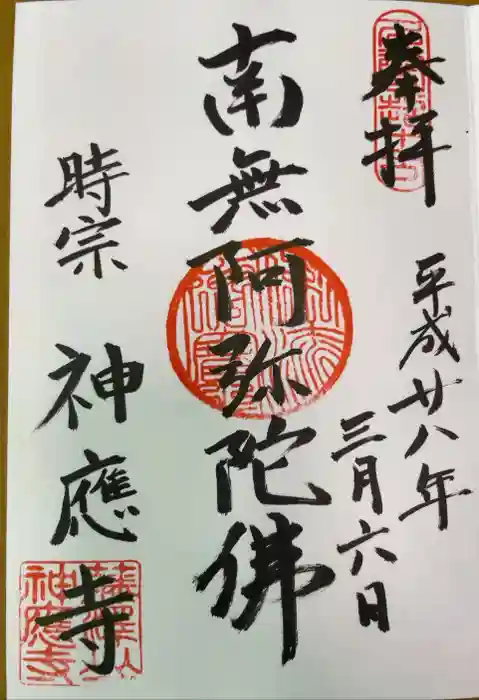 奉拝
平成廿八年
三月六日
南無阿弥陀佛
時宗
神應寺
神應寺